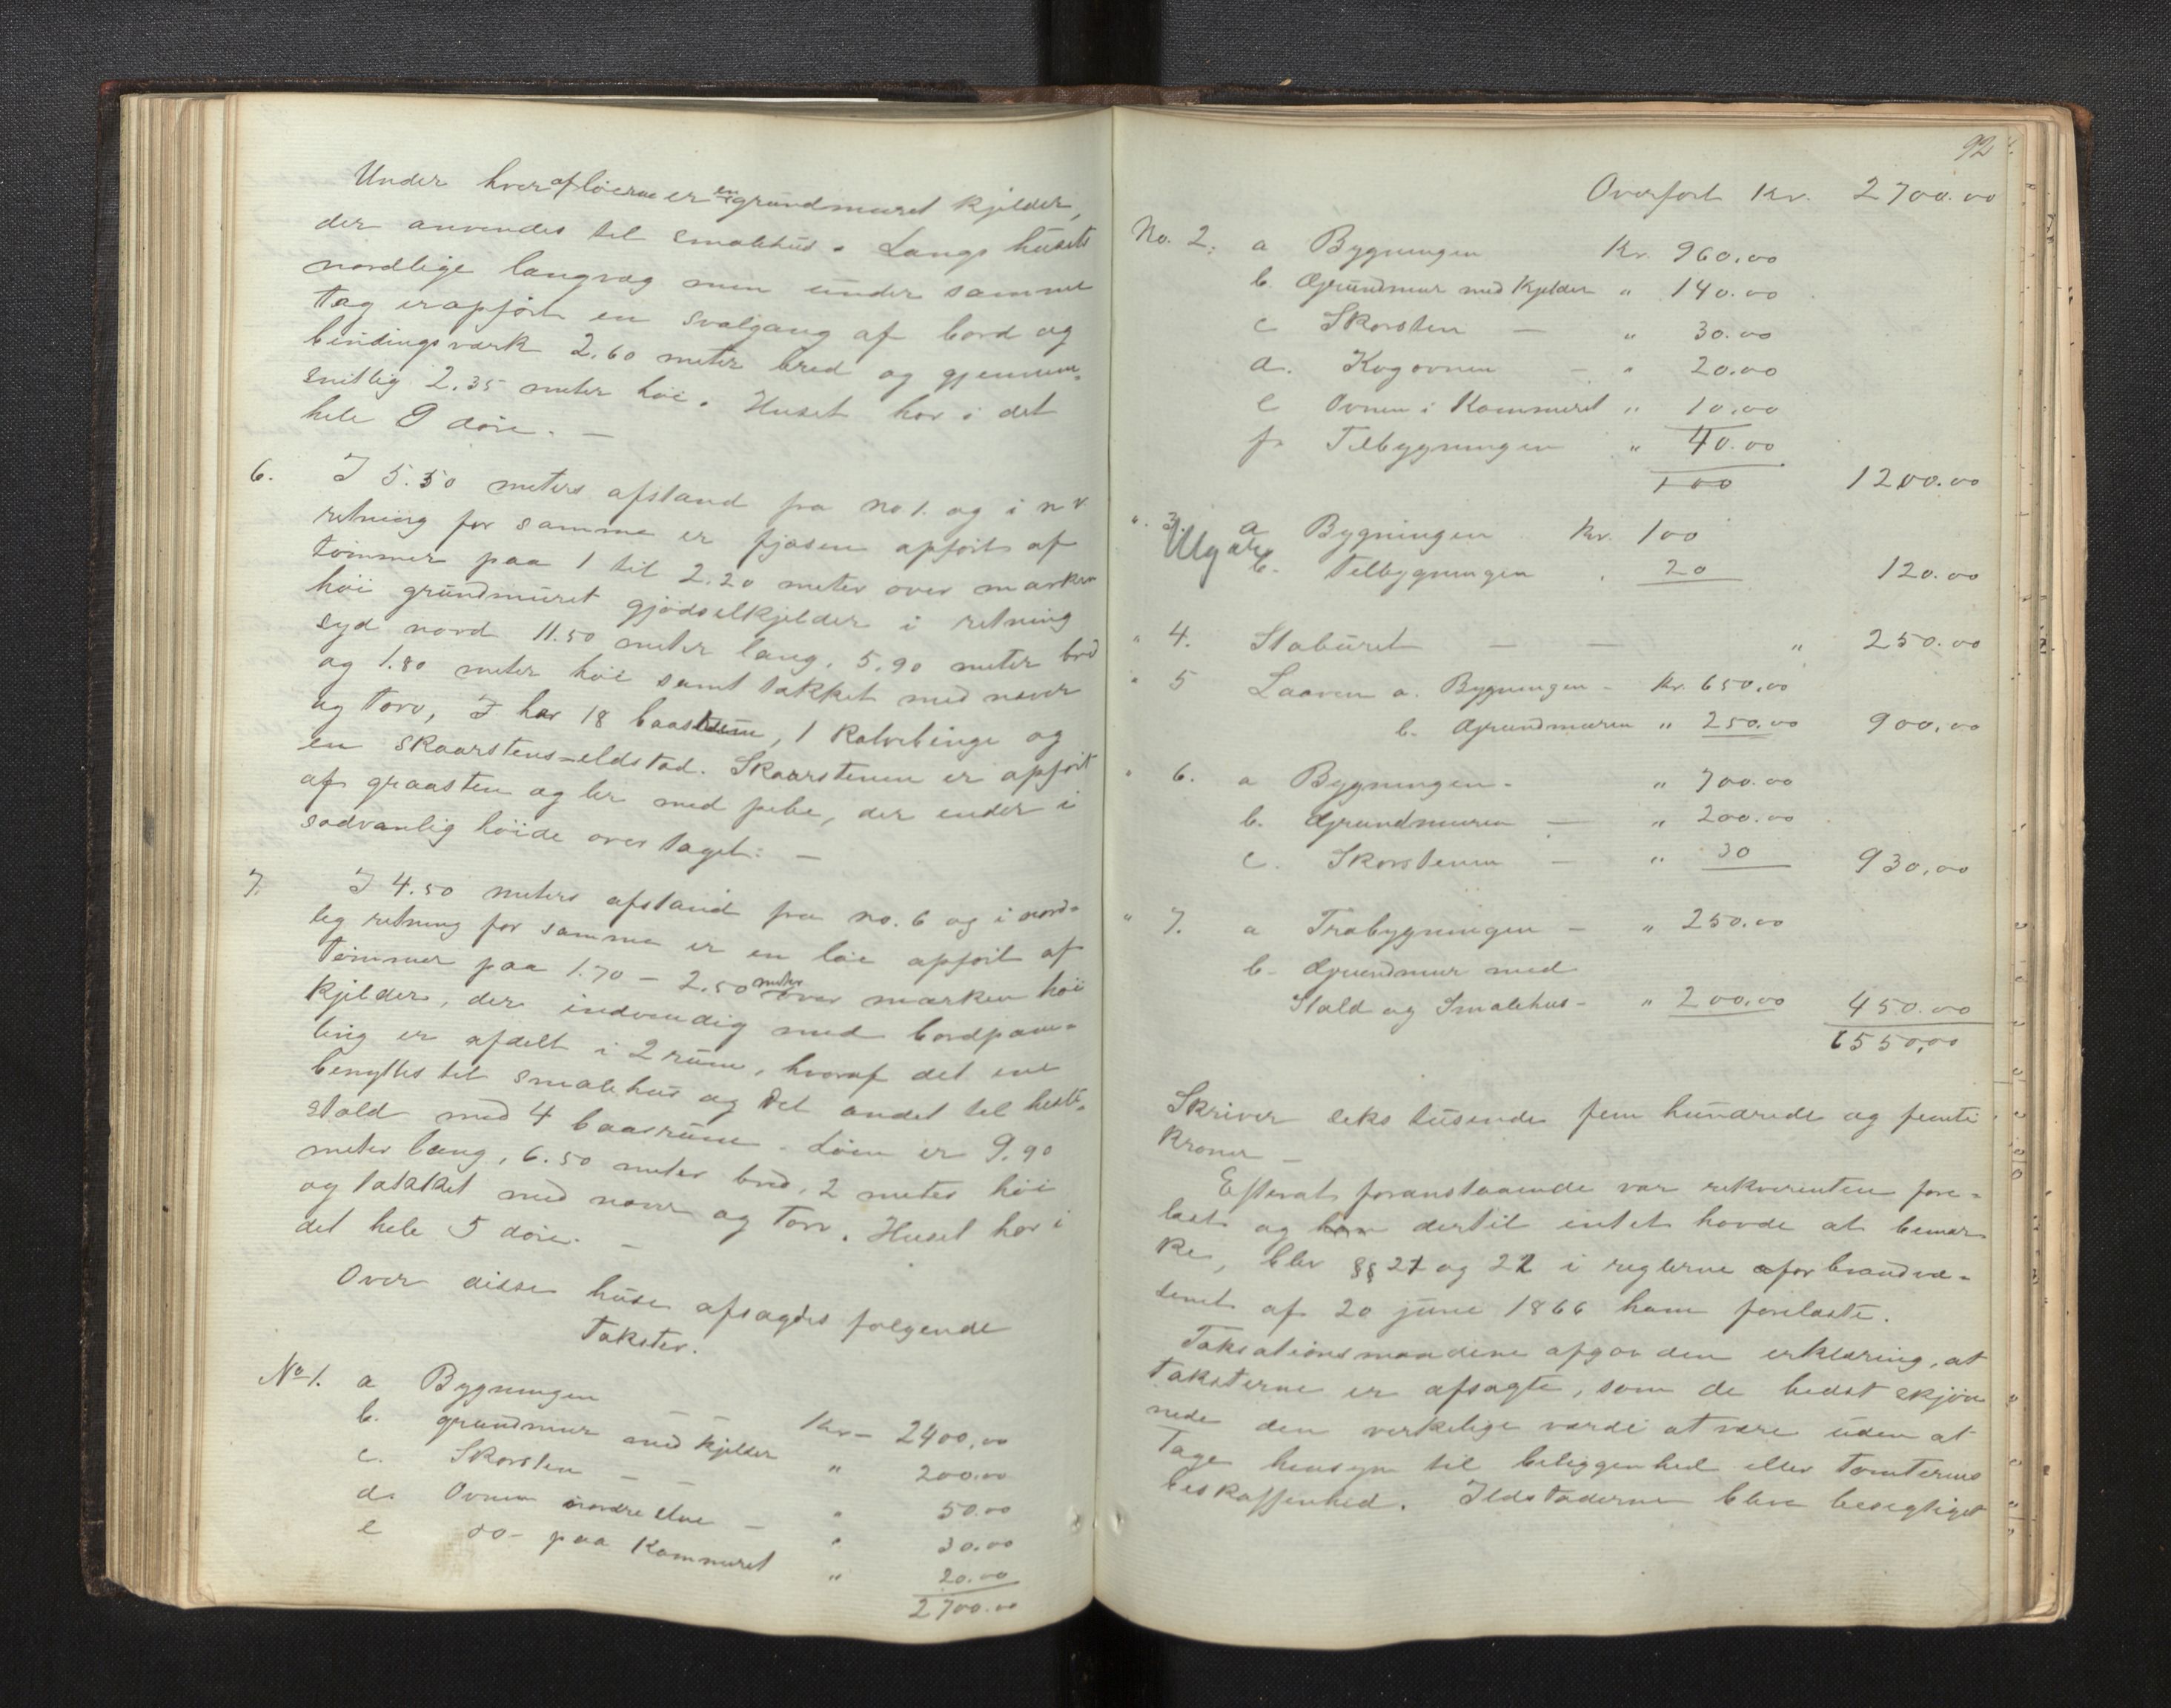 Under hver af löerne er en grundmuret kjelder,
der anvendes til smalehus. Langs husets
nordlige langvæg men under samme
tag er opfört en svalgang af bord og
bindingsværk 2.60 meter bred og gjennem-
snitlig 2.35 meter höi. Huset har i det
hele 9 döre. —
6. I 5.50 meters afstand fra no 1. og i n v
retning for samme er fjøsen opfört af
tömmer paa 1 til 2.20 meter over marken
höi grundmuret gjödselkjelder i retning
syd nord 11.50 meter lang, 5.90 meter bred
og 1.80 meter höi samt tækket med næver
og torv, I har 18 baasrum, 1 kalvebinge og
en skaarstens-eldstad. Skaarstenen er opfört
af graasten og ler med pibe, der ender i
sædvanlig höide over taget: —
7. I 4.50 meters afstand fra no. 6 og i nord-
lig retning for samme er en löe opfört af
tömmer paa 1.70 – 2.50 meter over marken höi
kjelder, der indvendig med bordpane-
ling er afdelt i 2 rum, hvoraf det ene
benyttes til smalehus og det andet til heste-
stald med 4 baasrum. Löen er 9.90
meter lang, 6.50 meter bred, 2 meter höi
og tækket med næver og torv. Huset har i
det hele 5 döre. —
Over disse huse afsagdes følgende
Takster.
No 1. a Bygningen — Kr – 2400,00
b. grundmur med kjelder " 200.00
c. Skorsten — — " 50.00
d. Ovnen nordre stue — " 30.00
e do– paa Kammeret " 20.00
2700.00
92
Overfört Kr. 2700.00
No. 2. a Bygningen Kr. 960.00
b. Grundmur med Kjelder " 140.00
c Skorsten — " 30.00
d. Kogovnen – " 20.00
e Ovnen i Kammeret " 10.00
f. Tilbygningen " 40.00
100 1200.00
". 3. a Bygningen Kr. 100
Ulgate
b. Tilbygningen . 20 120.00
" 4. Staburet — — " 250.00
" 5 Laaven a. Bygningen – Kr. 650,00
b. Grundmuren " 250.00 900,00
" 6. a Bygningen. " 700.00
b. Grundmuren — " 200.00
c. Skorstenen — " 30 930,00
" 7. a Træbygningen – " 250.00
b. Grundmur med
Stald og Smalehus – " 200.00 450.00
6550,00
Skriver seks tusende fem hundrede og femti
Kroner —
Efterat foranstaaende var rekvirenten fore-
læst og han dertil intet havde at bemær
ke, blev §§ 21 og 22 i reglerne for brandvæ-
senet af 20 june 1866 ham forelæste.
Taksationsmændene afgav den erklæring, at
taksterne er afsagte, som de bedst skjøn
nede den verkelige værdi at være uden at
tage hensyn til beliggenhed eller tomternes
beskaffenhed. Ildstæderne blev besigtiget